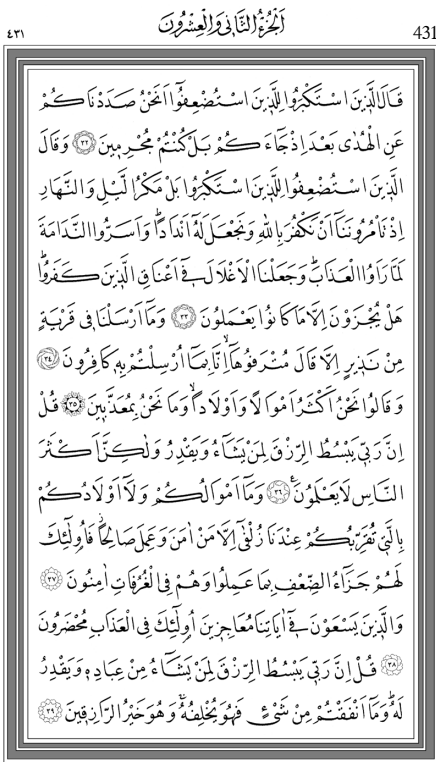 اَلْجُزْءُ الثَّانِى وَالْعِشْرُونَ
٤٣١
431
قَالَ الَّذِينَ اسْتَكْبَرُوا لِلَّذِينَ اسْتُضْعِفُٓوا اَنَحْنُ صَدَدْنَاكُمْ
عَنِ الْهُدٰى بَعْدَ اِذْ جَٓاءَكُمْ بَلْ كُنْتُمْ مُجْرِمِينَ ﴿٣٢﴾ وَقَالَ
الَّذِينَ اسْتُضْعِفُوا لِلَّذِينَ اسْتَكْبَرُوا بَلْ مَكْرُ الَّيْلِ وَالنَّهَارِ
اِذْ تَأْمُرُونَنَٓا اَنْ نَكْفُرَ بِاللّٰهِ وَنَجْعَلَ لَهُٓ اَنْدَادًاۜ وَاَسَرُّوا النَّدَامَةَ
لَمَّا رَاَوُا الْعَذَابَۜ وَجَعَلْنَا الْاَغْلَالَ فِٓى اَعْنَاقِ الَّذِينَ كَفَرُواۜ
هَلْ يُجْزَوْنَ اِلَّا مَا كَانُوا يَعْمَلُونَ ﴿٣٣﴾ وَمَٓا اَرْسَلْنَا فِى قَرْيَةٍ
مِنْ نَذِيرٍ اِلَّا قَالَ مُتْرَفُوهَٓاۙ اِنَّا بِمَٓا اُرْسِلْتُمْ بِهِ كَافِرُونَ ﴿٣٤﴾
وَقَالُوا نَحْنُ اَكْثَرُ اَمْوَالًا وَاَوْلَادًاۙ وَمَا نَحْنُ بِمُعَذَّبِينَ ﴿٣٥﴾ قُلْ
اِنَّ رَبِّى يَبْسُطُ الرِّزْقَ لِمَنْ يَشَٓاءُ وَيَقْدِرُ وَلٰكِنَّ اَكْثَرَ
النَّاسِ لَا يَعْلَمُونَ ﴿٣٦﴾ وَمَٓا اَمْوَالُكُمْ وَلَٓا اَوْلَادُكُمْ
بِالَّتِى تُقَرِّبُكُمْ عِنْدَنَا زُلْفٰٓى اِلَّا مَنْ اٰمَنَ وَعَمِلَ صَالِحًاۘ فَاُو۬لٰٓئِكَ
لَهُمْ جَزَٓاءُ الضِّعْفِ بِمَا عَمِلُوا وَهُمْ فِى الْغُرُفَاتِ اٰمِنُونَ ﴿٣٧﴾
وَالَّذِينَ يَسْعَوْنَ فِٓى اٰيَاتِنَا مُعَاجِزِينَ اُو۬لٰٓئِكَ فِى الْعَذَابِ مُحْضَرُونَ
﴿٣٨﴾ قُلْ اِنَّ رَبِّى يَبْسُطُ الرِّزْقَ لِمَنْ يَشَٓاءُ مِنْ عِبَادِهِ وَيَقْدِرُ
لَهُۜ وَمَٓا اَنْفَقْتُمْ مِنْ شَىْءٍ فَهُوَ يُخْلِفُهُۚ وَهُوَ خَيْرُ الرَّازِقِينَ ﴿٣٩﴾